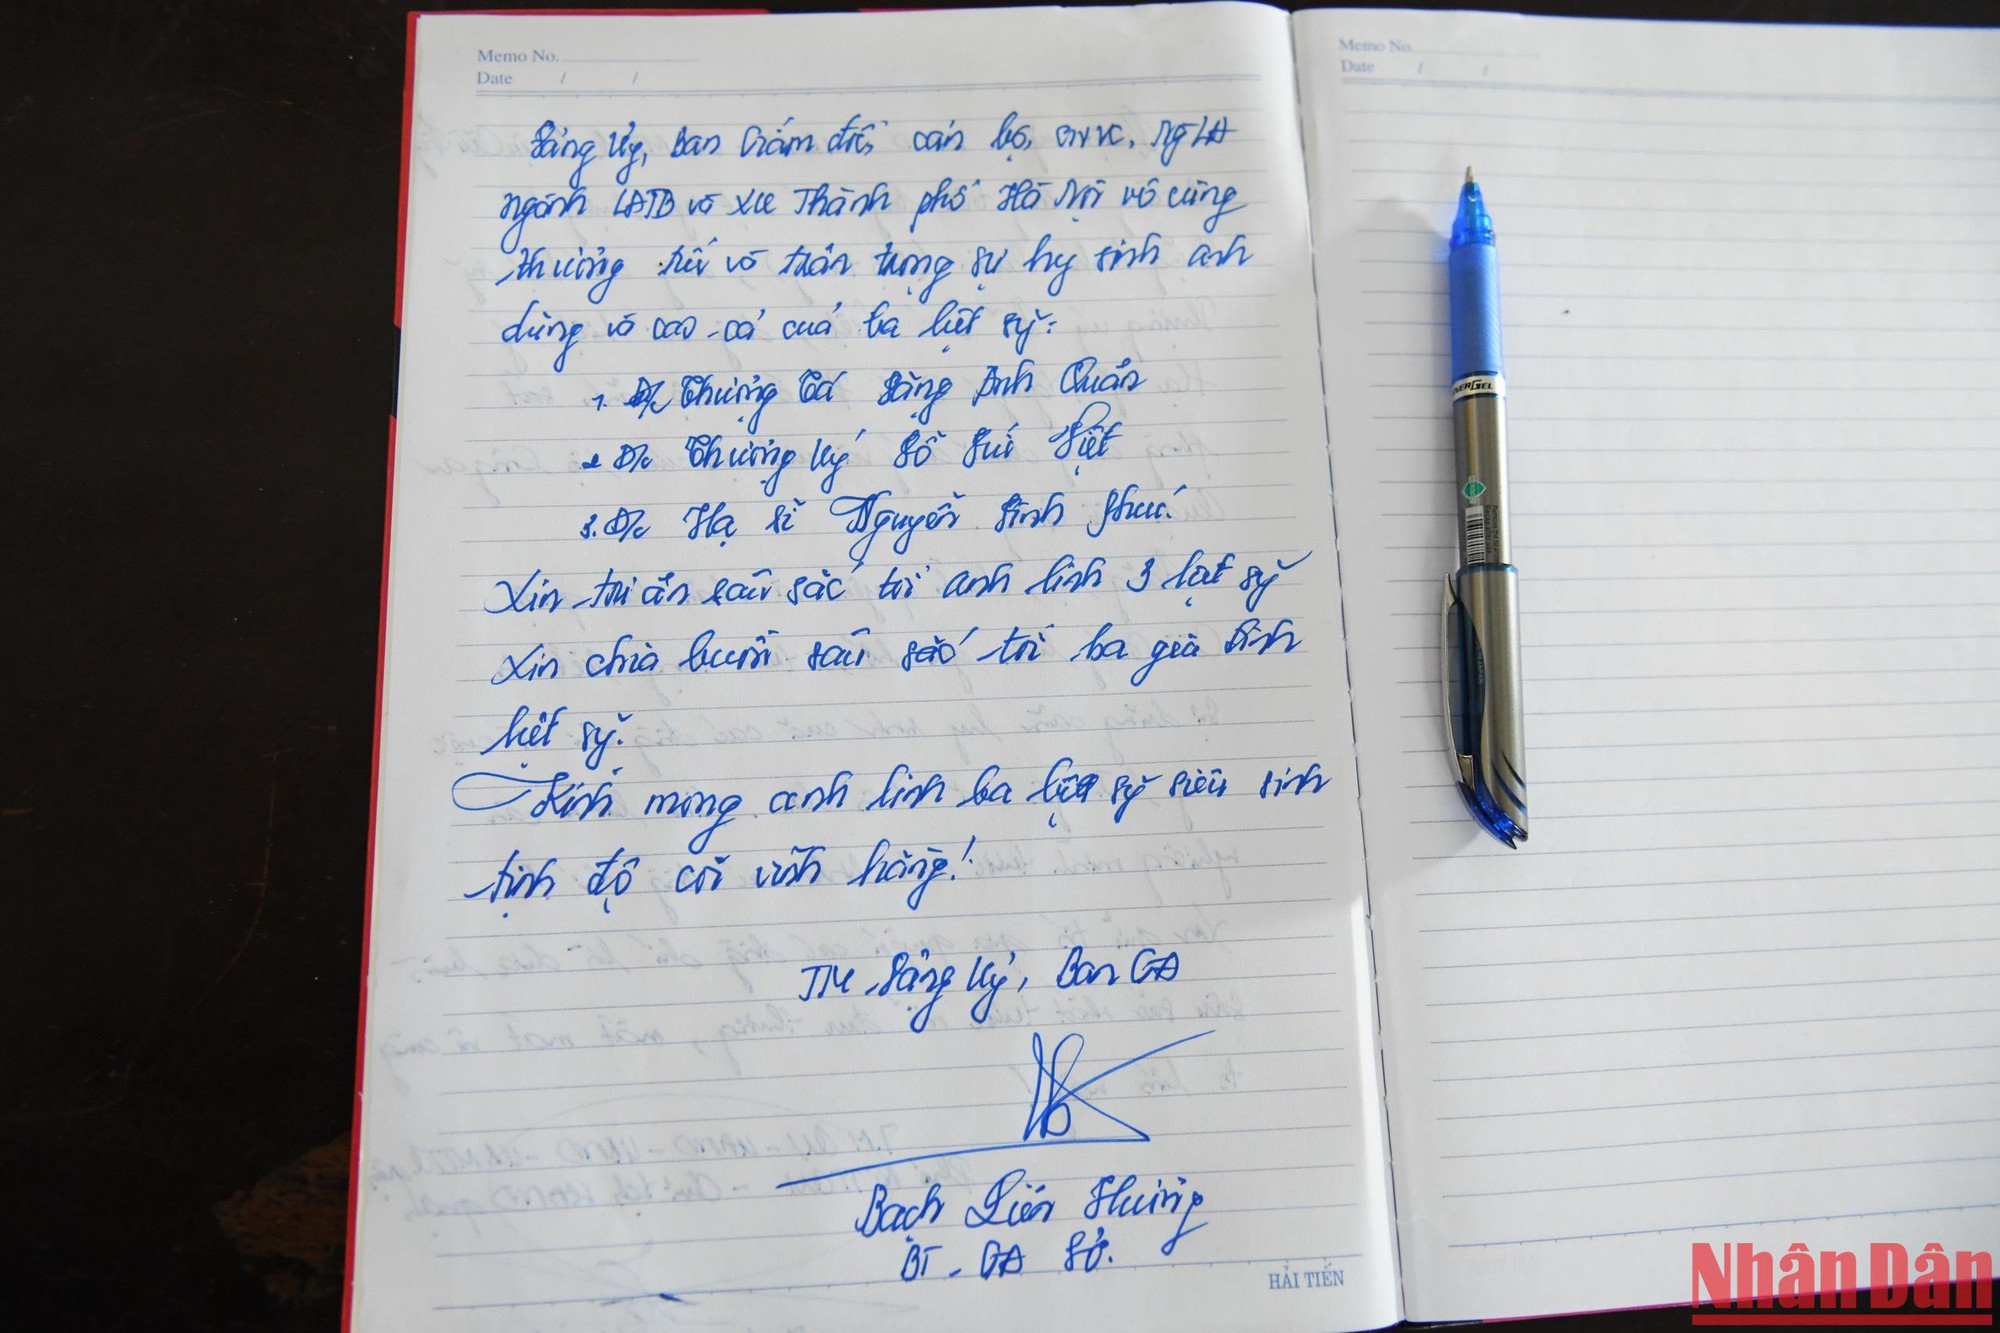 Memo No.
Date / /
Memo No.
Date / /
Đảng Ủy, Ban Giám đốc, cán bộ, CCVC, NgLĐ
ngành LĐTB và XH Thành phố Hà Nội vô cùng
thương tiếc và trân trọng sự hy sinh anh
dũng và cao cả của ba liệt sỹ:
1. Đ/c Thượng Tá Đặng Anh Quân
2 Đ/c Thượng Úy Đỗ Đức Việt
3. Đ/c Hạ Sĩ Nguyễn Đình Phúc.
Xin tri ân sâu sắc tới anh linh 3 liệt sỹ
Xin chia buồn sâu sắc tới ba gia đình
liệt sỹ.
Kính mong anh linh ba liệt sỹ siêu sinh
tịnh độ cõi vĩnh hằng!
TM Đảng Ủy, Ban GĐ
Bạch Liên Hương
BT - GĐ Sở.
HẢI TIẾN
ENERGEL
Nhân Dân